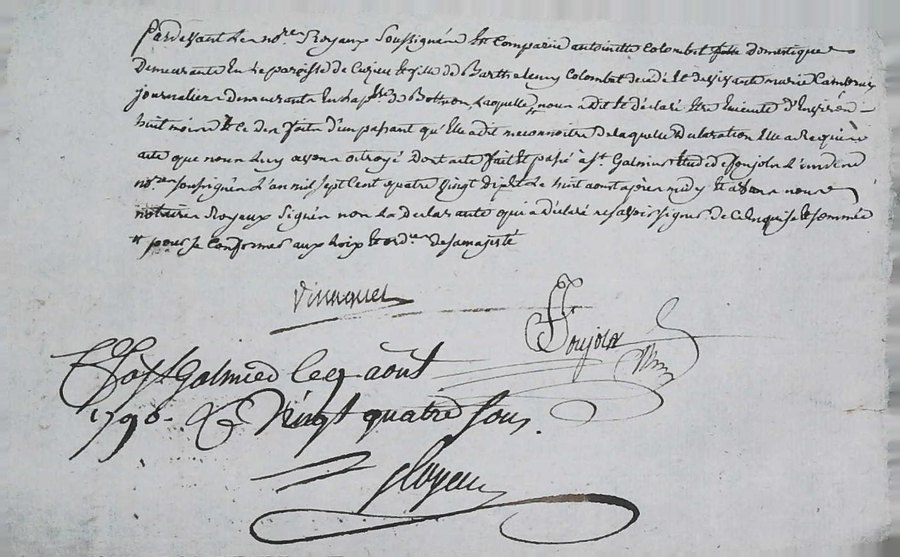 Pardevant Les no.res Royaux Soussignés Est Comparüe antoinette Colombet fille domestique
Demeurante En la paroisse de Cuzieu Le fille de Barthelemy Colombet et de vivante marie
journalier demeurants En la p.sse de Bothéon Laquelle nous a dit Et declaré Etre Enceinte d'Environ
huit mois Et ce des faits d'un passant qu'Elle a dit meconnoitre de laquelle declaration Elle a Requis
acte que nous Luy avons octroyé Dont acte fait Et passé a St Galmier Etude de Soujols L'un des
no.res Soussignés L'an mil sept Cent quatre vingt dix Et Le huit aout apres midy Et avons nous
notaires Royaux Signés non La Declarante qui a declaré ne savoir signer de ce Enquise Et sommée
pour se Conformer aux Loix Et ord.ces de sa majesté
Soujols
a St Galmier le 9 août
1790 - Vingt quatre sous.